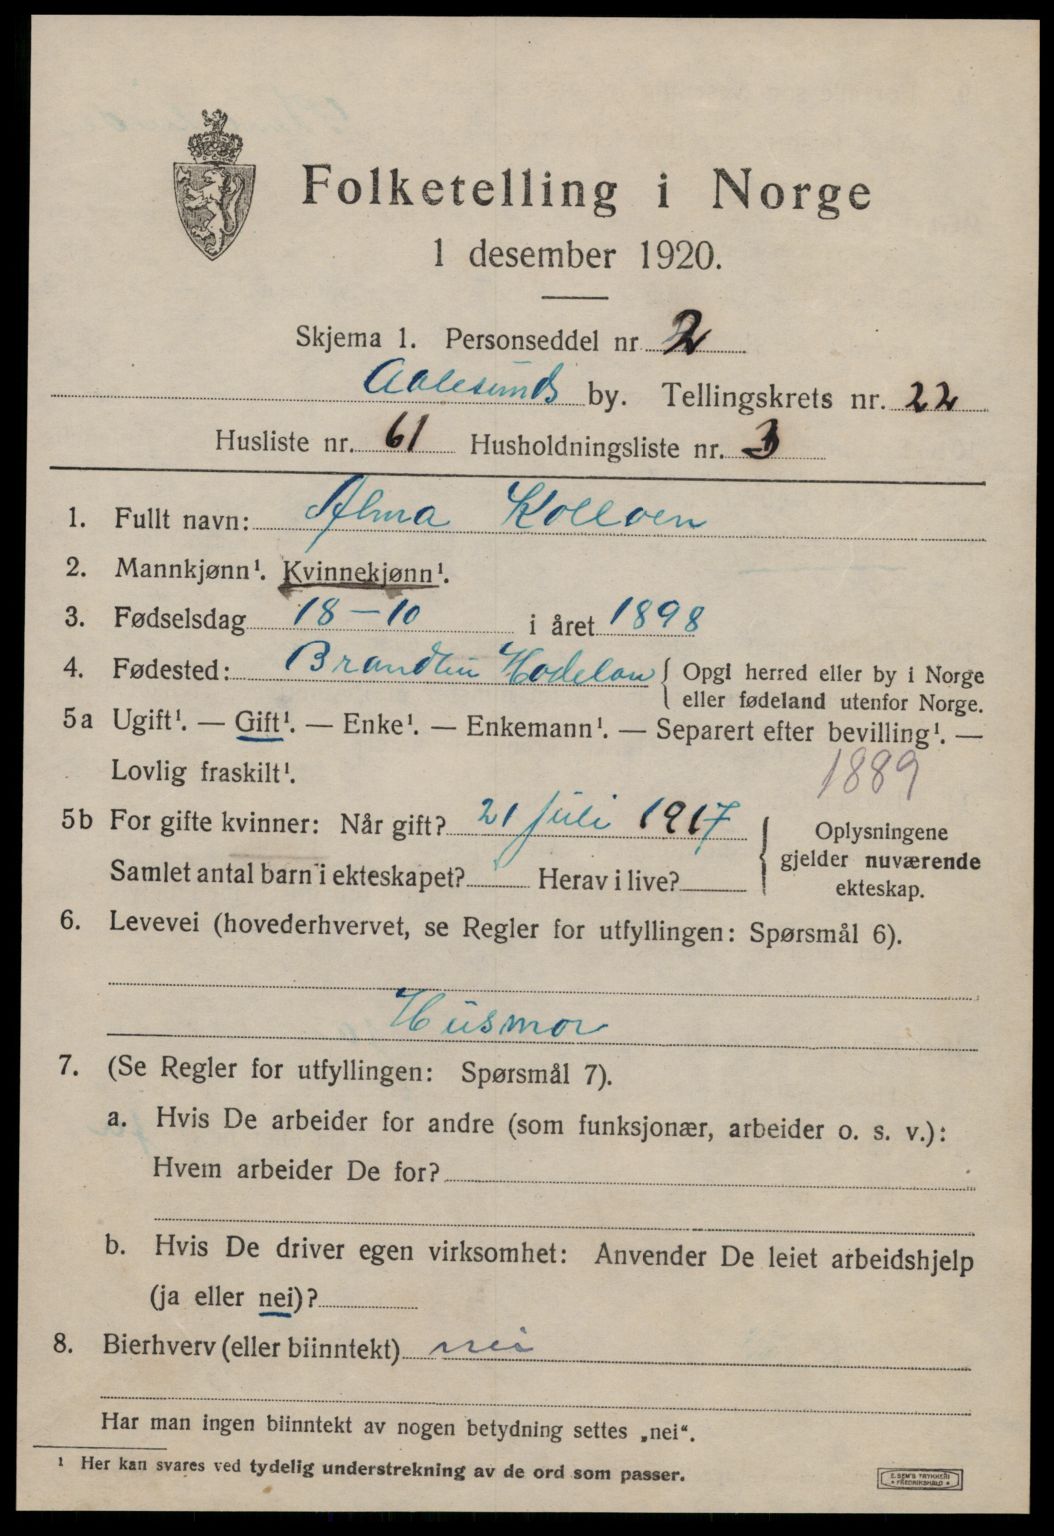 Folketelling i Norge
1 desember 1920.
Skjema 1. Personseddel nr 2
Aalesunds by. Tellingskrets nr. 22
Husliste nr. 61 Husholdningsliste nr. 3
1. Fullt navn: Alma Kolloen
2. Mannkjønn¹. Kvinnekjønn¹.
3. Fødselsdag 18-10 i året 1898
4. Fødested: Hodelan { Opgi herred eller by i Norge
eller fødeland utenfor Norge.
5a Ugift¹. — Gift¹. — Enke¹. — Enkemann¹. — Separert efter bevilling¹. —
Lovlig fraskilt¹. 1889
5b For gifte kvinner: Når gift? 21 juli 1917 { Oplysningene
gjelder nuværende
ekteskap.
Samlet antal barn i ekteskapet? Herav i live?
6. Levevei (hovederhvervet, se Regler for utfyllingen: Spørsmål 6).
Husmor
7. (Se Regler for utfyllingen: Spørsmål 7).
a. Hvis De arbeider for andre (som funksjonær, arbeider o. s. v.):
Hvem arbeider De for?
b. Hvis De driver egen virksomhet: Anvender De leiet arbeidshjelp
(ja eller nei)?
8. Bierhverv (eller biinntekt) nei
Har man ingen biinntekt av nogen betydning settes „nei“.
¹ Her kan svares ved tydelig understrekning av de ord som passer.
E. SEM'S TRYKKERI
FREDRIKSHALD